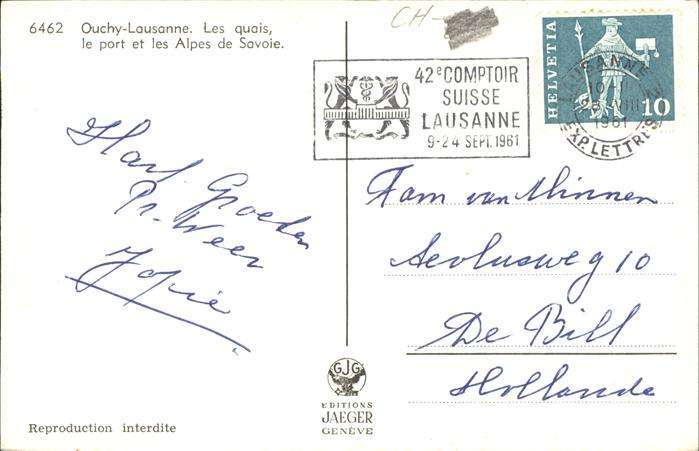 6462 Ouchy-Lausanne. Les quais,
le port et les Alpes de Savoie.
CH-
42e COMPTOIR
SUISSE
LAUSANNE
9-24 SEPT. 1961
HELVETIA
10
LAUSANNE 2
10-11
VIII
1961
EXP. LETTRES
Hart. Groeten
Pr. Weer
Jopie
Fam van Minnen
Aeolusweg 10
De Bilt
Hollande
GJG
EDITIONS
JAEGER
GENÈVE
Reproduction interdite